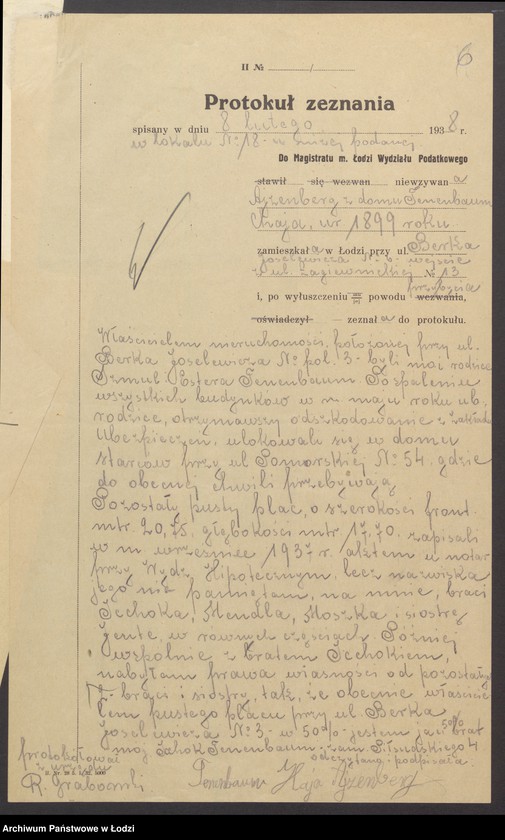 6
II № /
Protokuł zeznania
spisany w dniu 8 lutego 1938 r.
w lokalu № 18 - w niżej podanej
Do Magistratu m. Łodzi Wydziału Podatkowego
stawił się wezwan niewzywana
Ajzenberg z domu Tenenbaum
Chaja, ur 1899 roku
zamieszkała w Łodzi, przy ul. Berka
Joselewicza № 6. wejście
z ul. Zagiewnickiej № 13
przybycia
i, po wyłuszczeniu powodu wezwania,
oświadczył — zeznała do protokułu.
Właścicielem nieruchomości, położonej przy ul.
Berka Joselewicza № pol. 3 - byli moi rodzice
Szmul - Estera Tenenbaum. Po spaleniu
wszystkich budynków w m. maju roku ub.
rodzice, otrzymawszy odszkodowanie z zakładu
Ubezpieczeń, ulokowali się w domu
starców przy ul Pomorskiej № 54, gdzie
do obecnej chwili przebywają
Pozostały pusty plac, o szerokości front.
mtr. 20,75, głębokości mtr 17,70, zapisali
w m. wrześniu 1937 r. aktem u notar
przy Wydz Hipotecznym, lecz nazwiska
jego nie pamiętam, na mnie, braci
Jechoka, Mendla, Moszka i siostrę
Jentę, w równych częściach. Później
wspólnie z bratem Jechokiem,
nabyłam prawa własności od pozostałych
2- braci i siostry, tak, że obecnie właścicie
lem pustego placu przy ul. Berka
Joselewicza № 3 - w 50% jestem ja i 50% brat
mój Jakok Tenenbaum - zam. Piłsudskiego 4
Odczytano - podpisała.
protokółował
z urzędu
R. Grabowski
Tenenbaum Haja Ajzenberg
Archiwum Państwowe w Łodzi